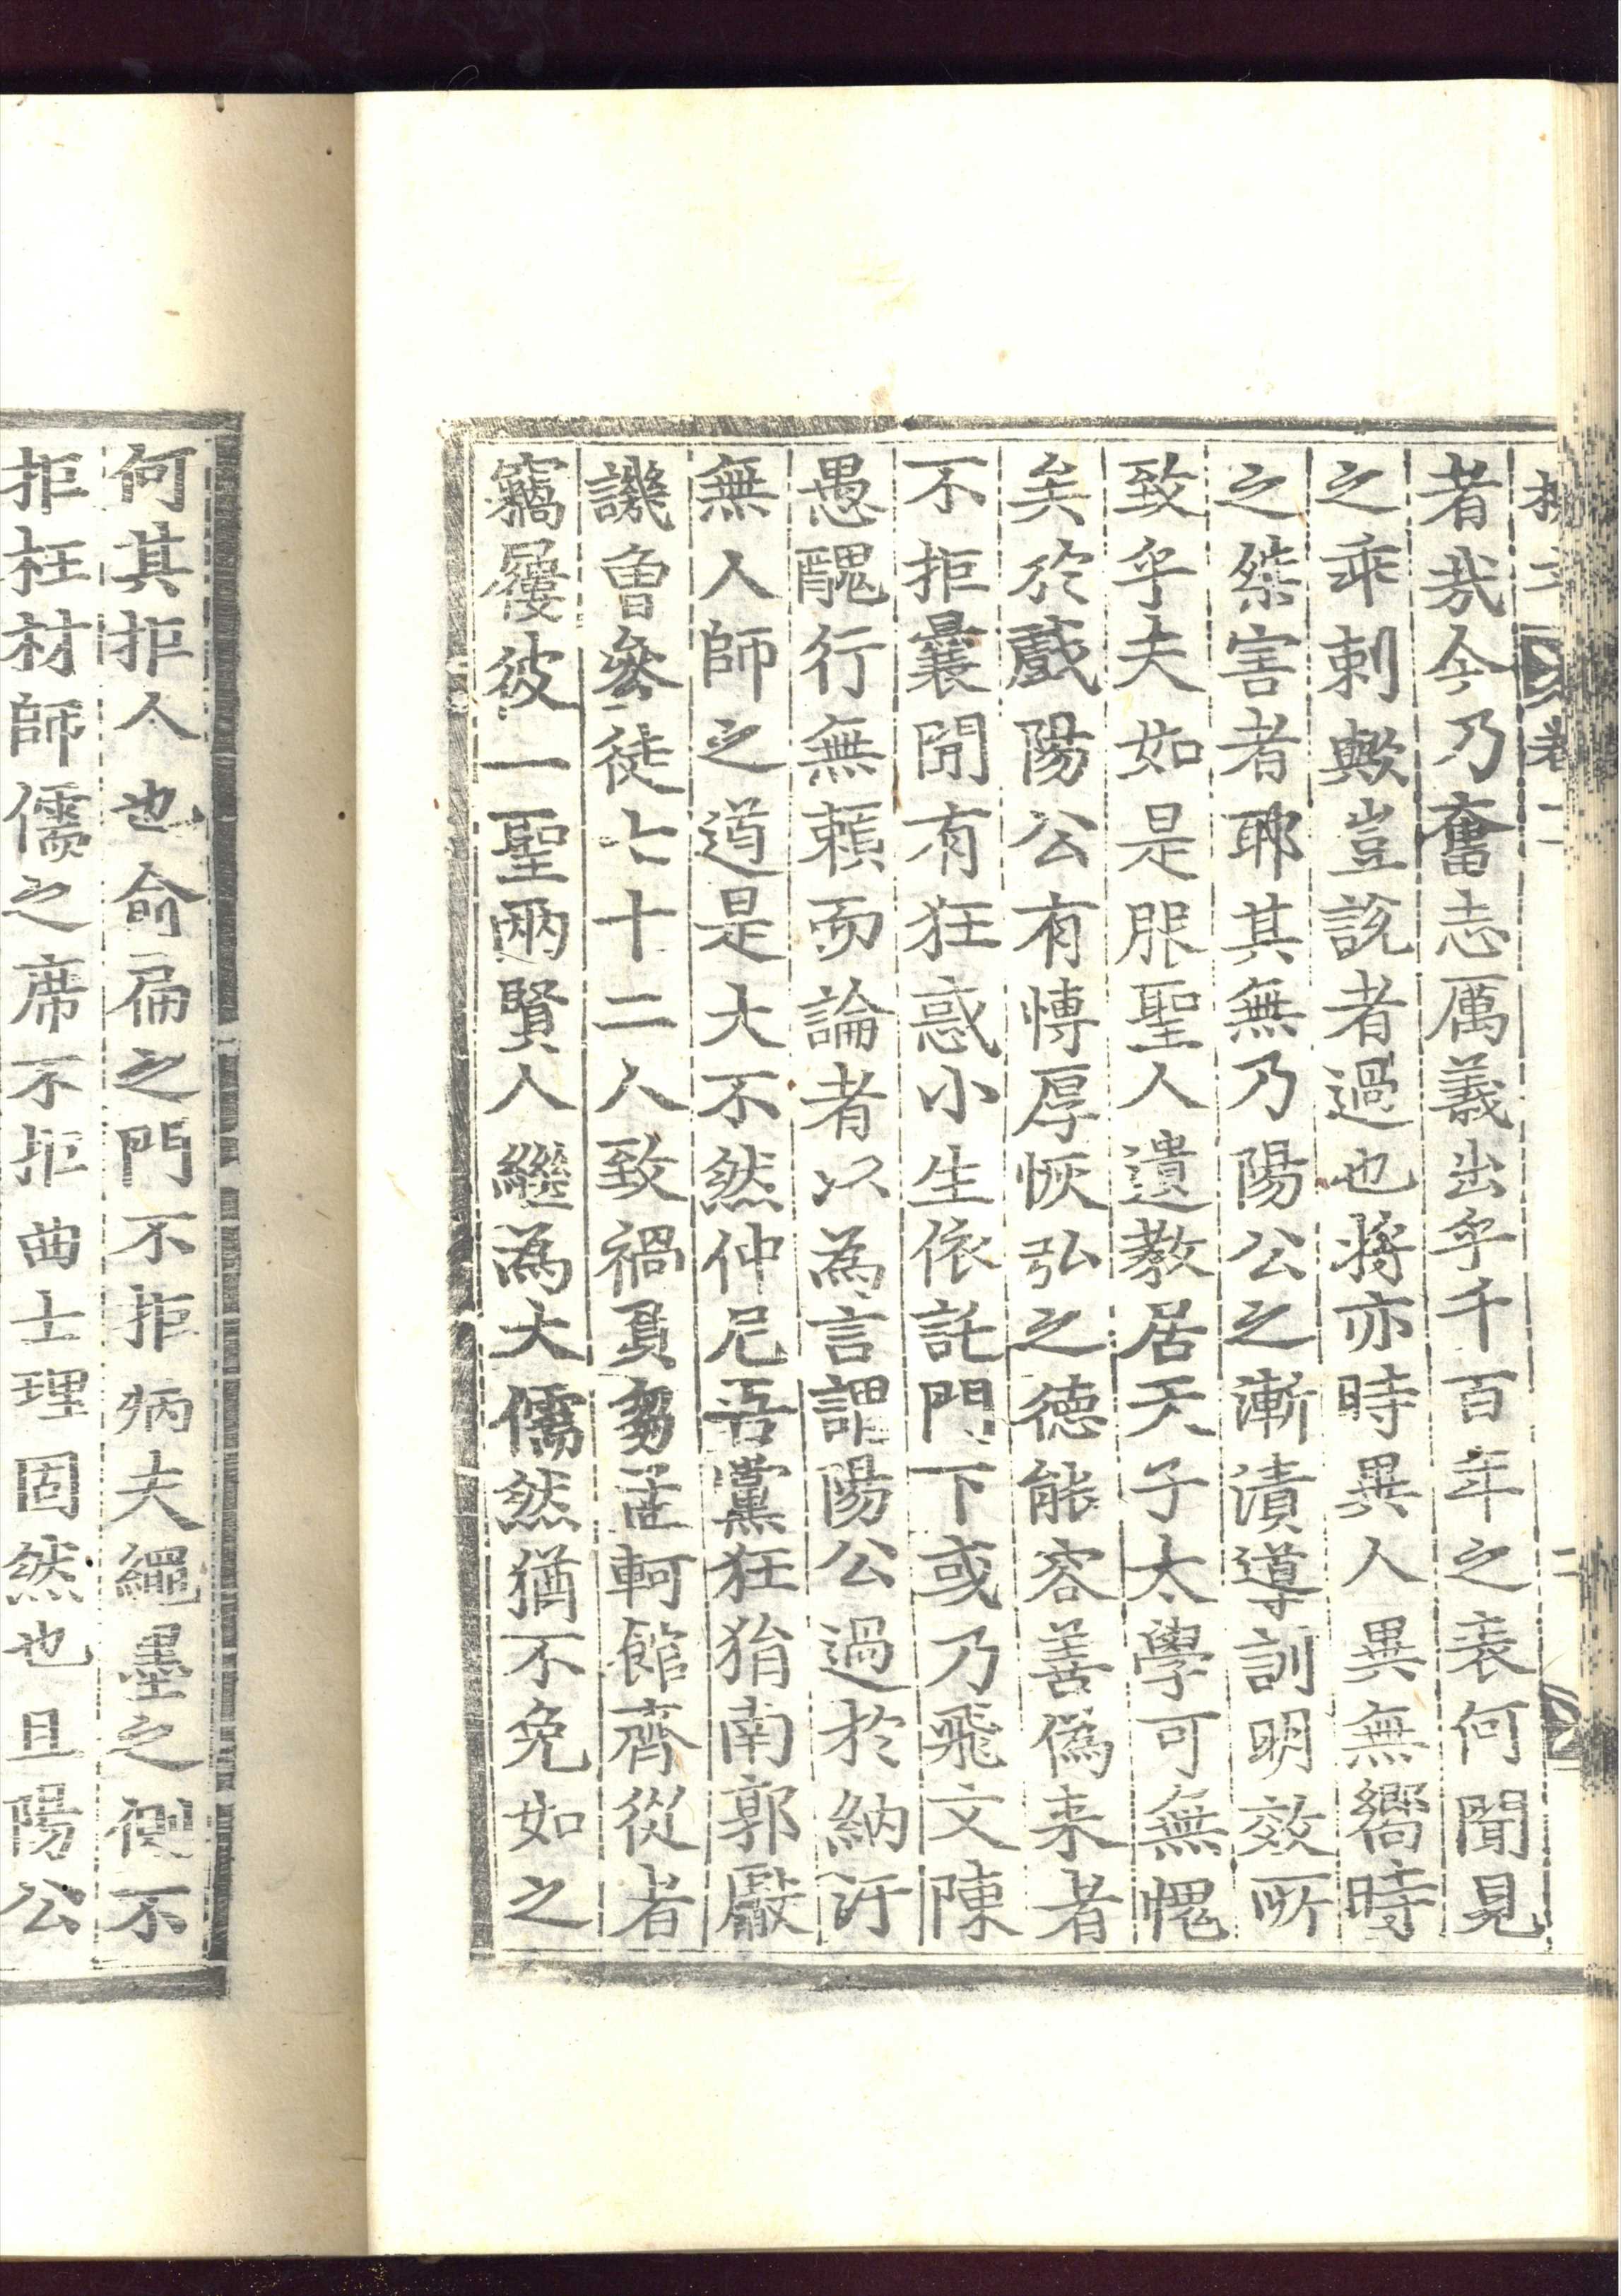 卷二
二
者㢤今乃奮志厲義出乎千百年之表何聞見
之乖剌歟豈説者過也將亦時異人異無嚮時
之桀害者耶其無乃陽公之漸漬導訓明效所
致乎夫如是服聖人遺教居天子太學可無愧
矣於戲陽公有博厚恢弘之德能容善僞来者
不拒曩聞有狂惑小生依託門下或乃飛文陳
愚醜行無賴而論者以為言謂陽公過於納汙
無人師之道是大不然仲尼吾黨狂狷南郭獻
譏曾參徒七十二人致禍負芻孟軻館齊從者
竊屨彼一聖兩賢人繼為大儒然猶不免如之
何其拒人也俞扁之門不拒病夫繩墨之側不
拒枉材師儒之席不拒曲士理固然也且陽公